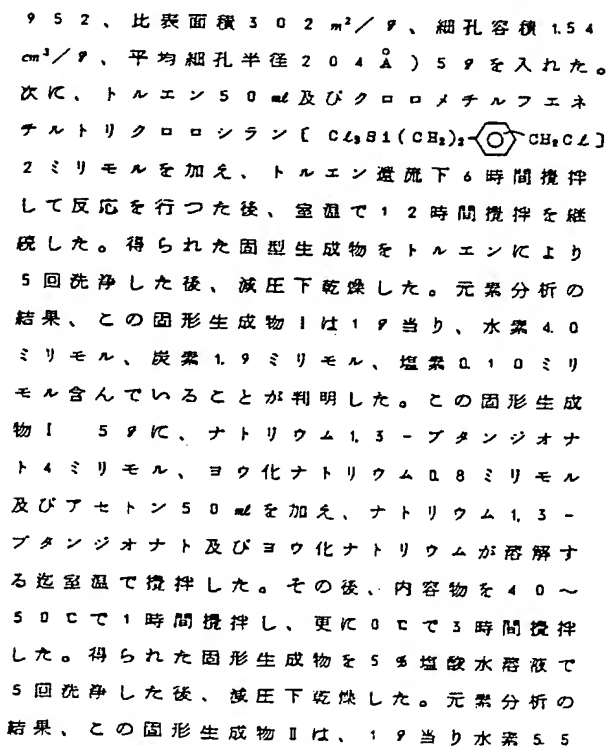 952、比表面積302m²/g、細孔容積1.54
cm³/g、平均細孔半径204Å)5gを入れた。
次に、トルエン50ml及びクロロメチルフエネ
チルトリクロロシラン[Cl₃Si(CH₂)₂-◯-CH₂Cl]
2ミリモルを加え、トルエン還流下6時間攪拌
して反応を行つた後、室温で12時間攪拌を継
続した。得られた固型生成物をトルエンにより
5回洗浄した後、減圧下乾燥した。元素分析の
結果、この固形生成物Iは1g当り、水素4.0
ミリモル、炭素1.9ミリモル、塩素0.10ミリ
モル含んでいることが判明した。この固形生成
物I 5gに、ナトリウム1,3-ブタンジオナ
ト4ミリモル、ヨウ化ナトリウム0.8ミリモル
及びアセトン50mlを加え、ナトリウム1,3-
ブタンジオナト及びヨウ化ナトリウムが溶解す
る迄室温で攪拌した。その後、内容物を40~
50℃で1時間攪拌し、更に0℃で3時間攪拌
した。得られた固形生成物を5%塩酸水溶液で
5回洗浄した後、減圧下乾燥した。元素分析の
結果、この固形生成物IIは、1g当り水素5.5